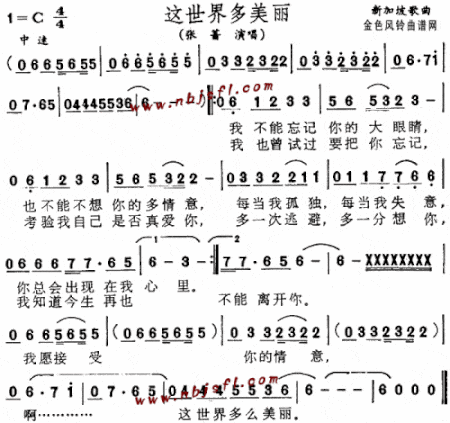 这世界多美丽
1=C 4/4
新加坡歌曲
中速
(张蔷 演唱)
金色风铃曲谱网
(0 6 6 5 6 6 5 5 | 0 6 6 5 6 6 5 5 | 0 3 3 2 3 2 2 1 | 0 3 3 2 3 2 2 1 | 0 6·7 i |
0 7·6 5 | 0 4 4 4 5 5 3 6 | 6 - - ) ‖: 0 6 1 2 3 3 | 5 6 5 3 2 3 - |
www.nbjsfl.com
我 不能忘记 你的 大眼睛,
我 也曾试过 要把 你忘记,
0 6 1 2 3 3 | 5 6 5 3 2 2 - - | 0 3 3 2 3 2 2 1 1 | 0 1 1 7 7 6 6 |
也不能不想 你的多情意, 每当我孤独, 每当我失 意,
考验我自己 是否真爱你, 多一次逃避, 多一分想 你,
0 6 6 6 7 7· 6 5 | 1 6 - 3 - :‖ 2 7 7· 6 5 6 - | 6 - XXXXXXXX |
你总会出现 在我 心 里。
我知道今生 再也 不能 离开你。
0 6 6 5 6 5 5 | (0 6 6 5 6 5 5) | 0 3 3 2 3 2 2 | (0 3 3 2 3 2 2) |
我愿接 受 你的情 意,
0 6·7 i | 0 7·6 5 | 0 4 4 4 4 5 5 3 6 | 6 - - - | 6 0 0 0 ‖
www.nbjsfl.com
啊………… 这世界多么美丽。